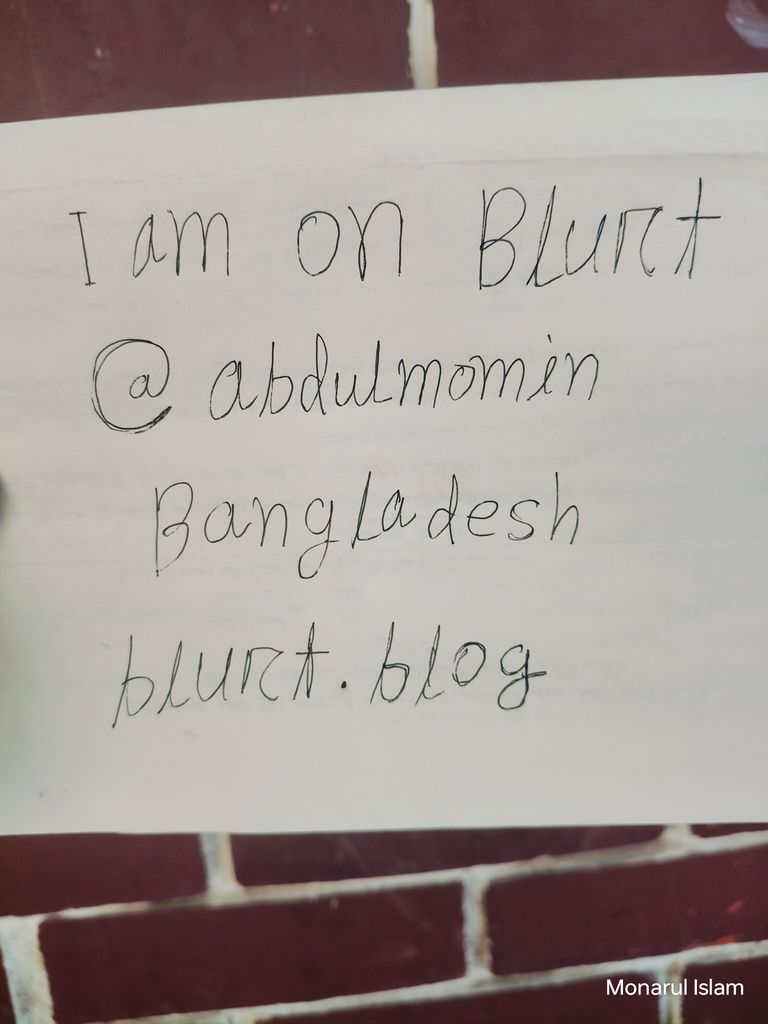 I am on Blurt
@abdulmomin
Bangladesh
blurt.blog
Monarul Islam